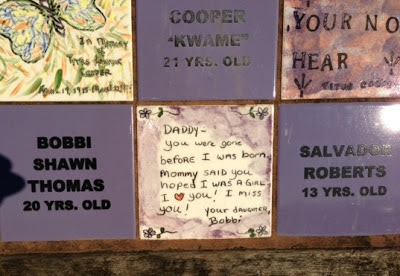 In Memory
of
COOPER
"KWAME"
21 YRS. OLD
YOUR NO
HEAR
BOBBI
SHAWN
THOMAS
20 YRS. OLD
DADDY-
you were gone
before I was born.
Mommy said you
hoped I WAS A GIRL
I ♥ you! I miss
you! your daughter,
Bobbi
SALVADOR
ROBERTS
13 YRS. OLD